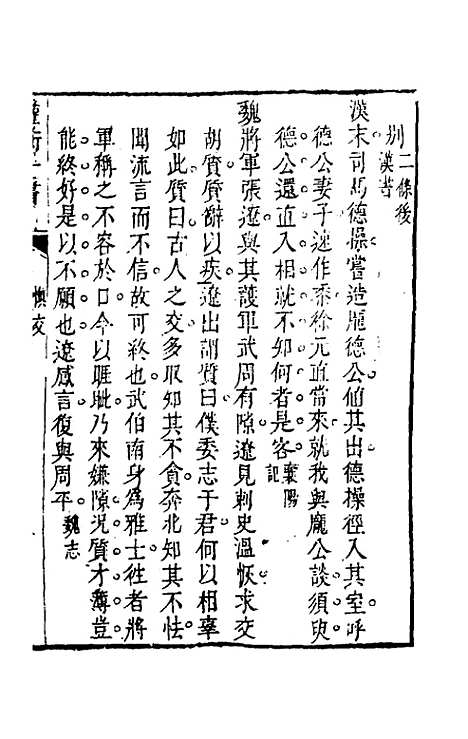 二條後
別漢書
漢末司馬德操嘗造龐德公值其出德操徑入其室呼
德公妻子速作黍徐元直當來就我與龐公談須臾
德公還直入相就不知何者是客襄陽記
魏將軍張遼與其護軍武周有隙遼見刺史溫恢求交
胡質質辭以疾遼出謂質曰僕委志于君何以相辜
如此質曰古人之交多取知其不貪奔北知其不怯
聞流言而不信故可終也武伯南身爲雅士徃者將
軍稱之不容於口今以睚眦乃來嫌隙况質才薄豈
能終好是以不願也遼感言復與周平魏志
愼交